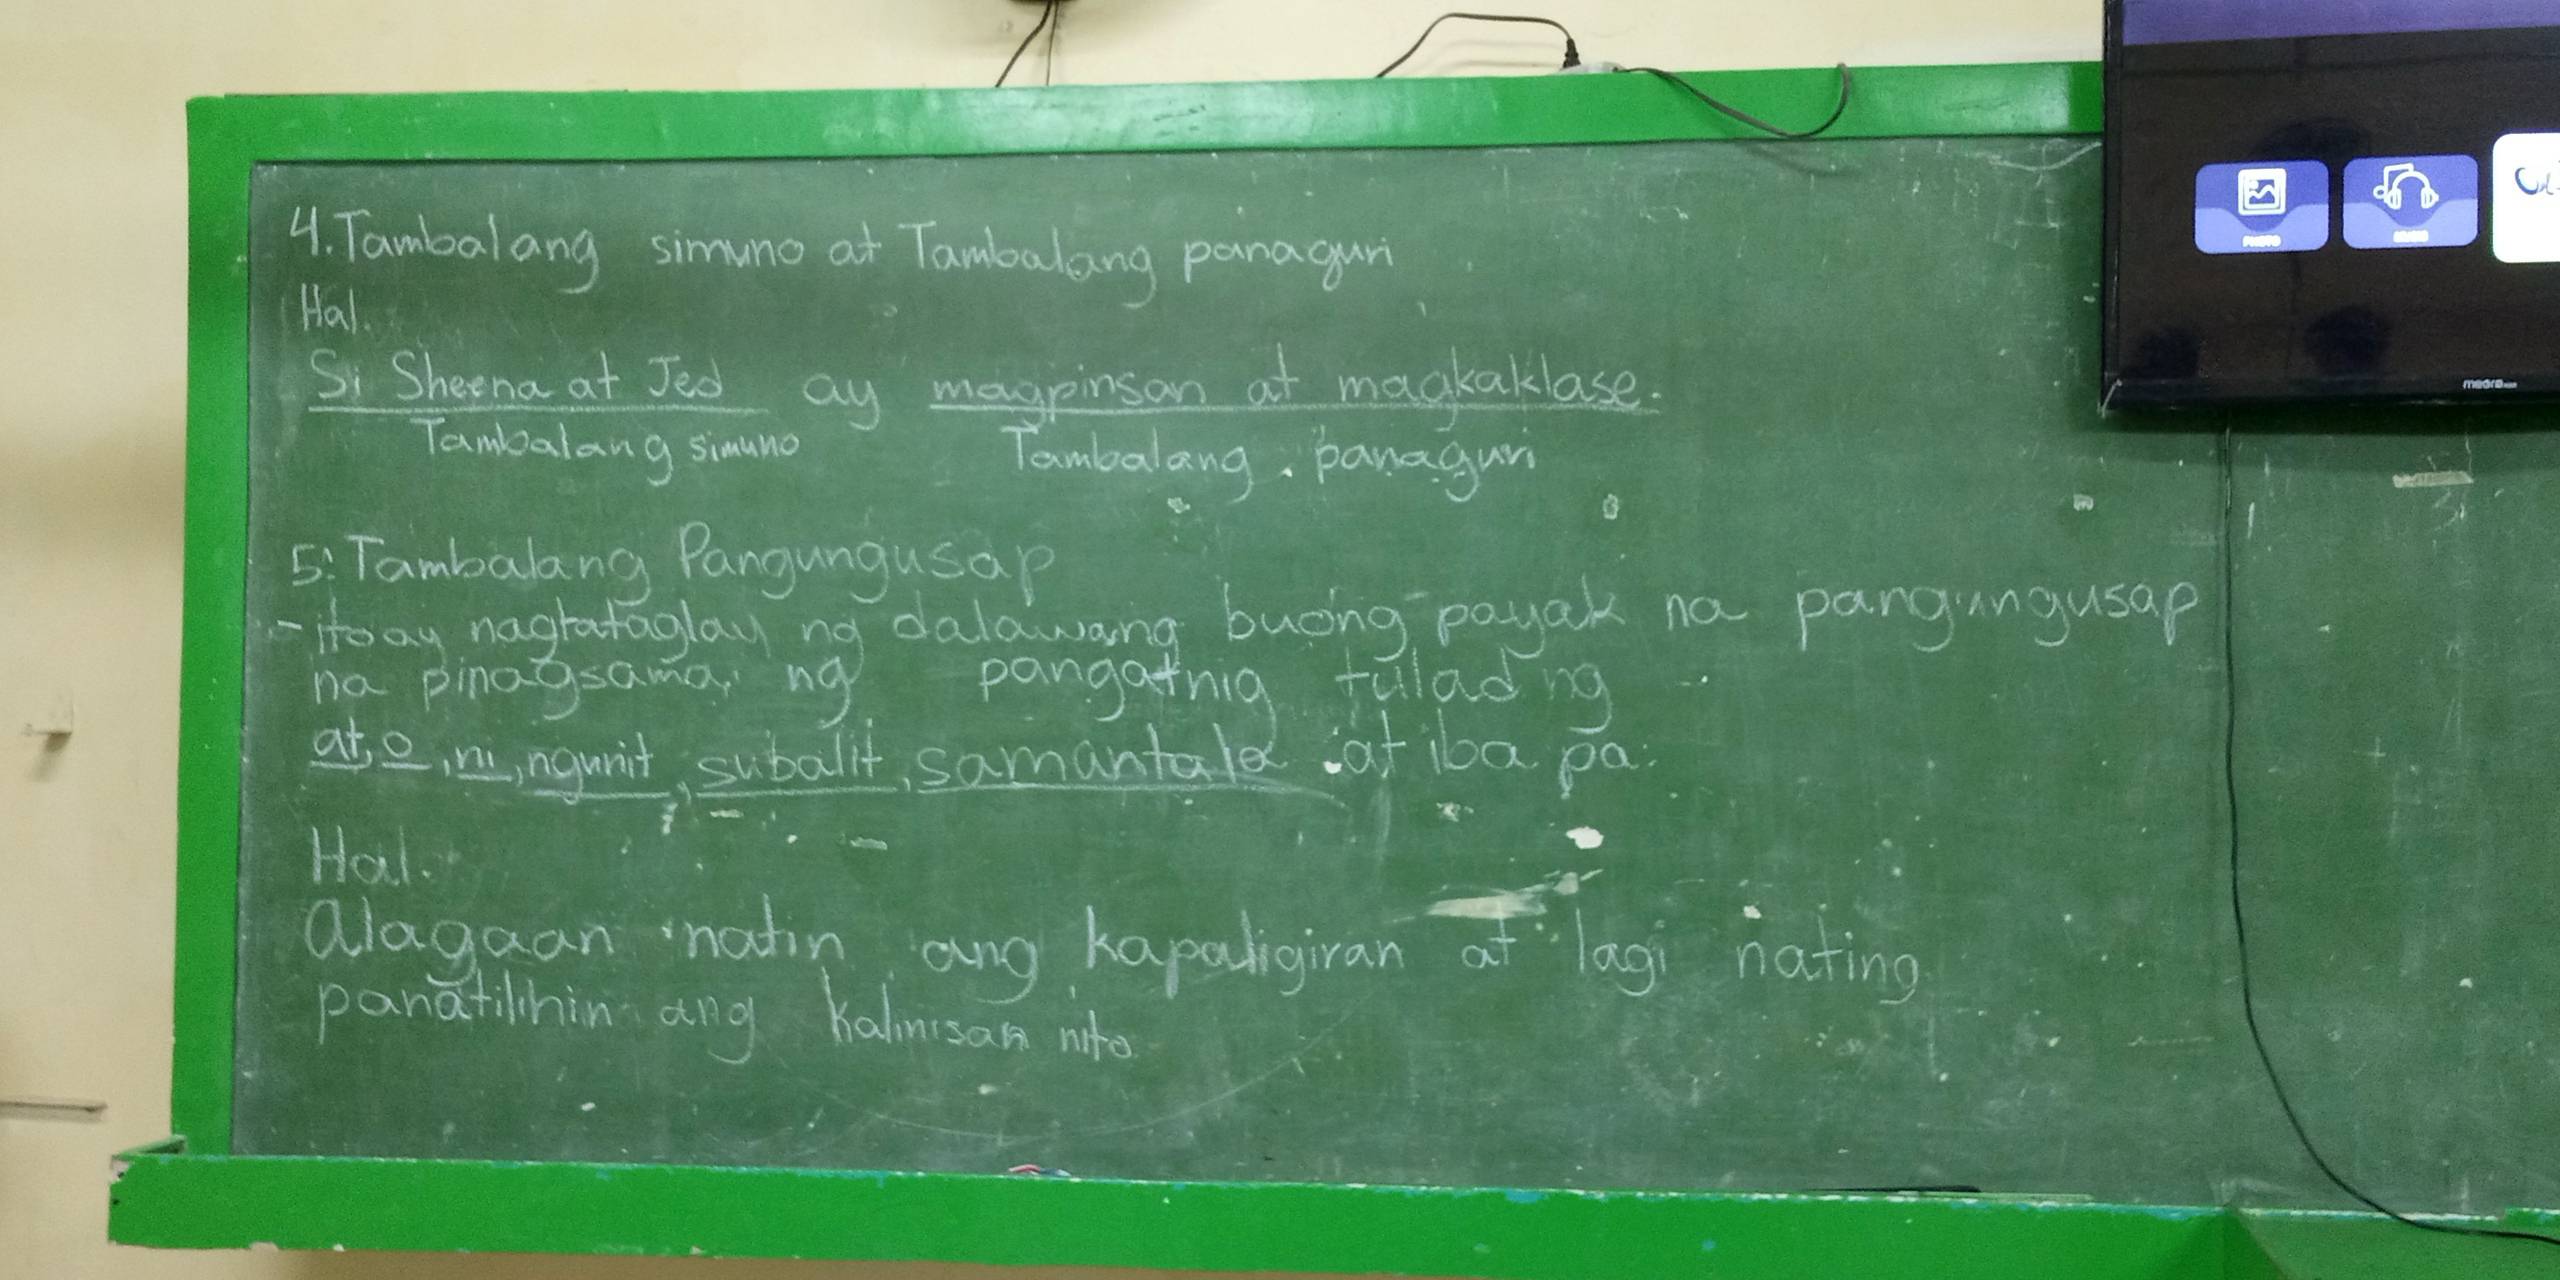 4. Tambalang simuno at Tambalang panaguri
Hal.
Si Sheena at Jed ay magpinsan at magkaklase.
Tambalang simuno Tambalang panaguri
5. Tambalang Pangungusap
- ito ay nagtataglay ng dalawang buong payak na pangungusap
na pinagsama ng pangatnig tulad ng
at, o, ni, ngunit, subalit, samantala at iba pa.
Hal.
Alagaan natin ang kapaligiran at lagi nating
panatilihin ang kalinisan nito.
PHOTO
MUSIC